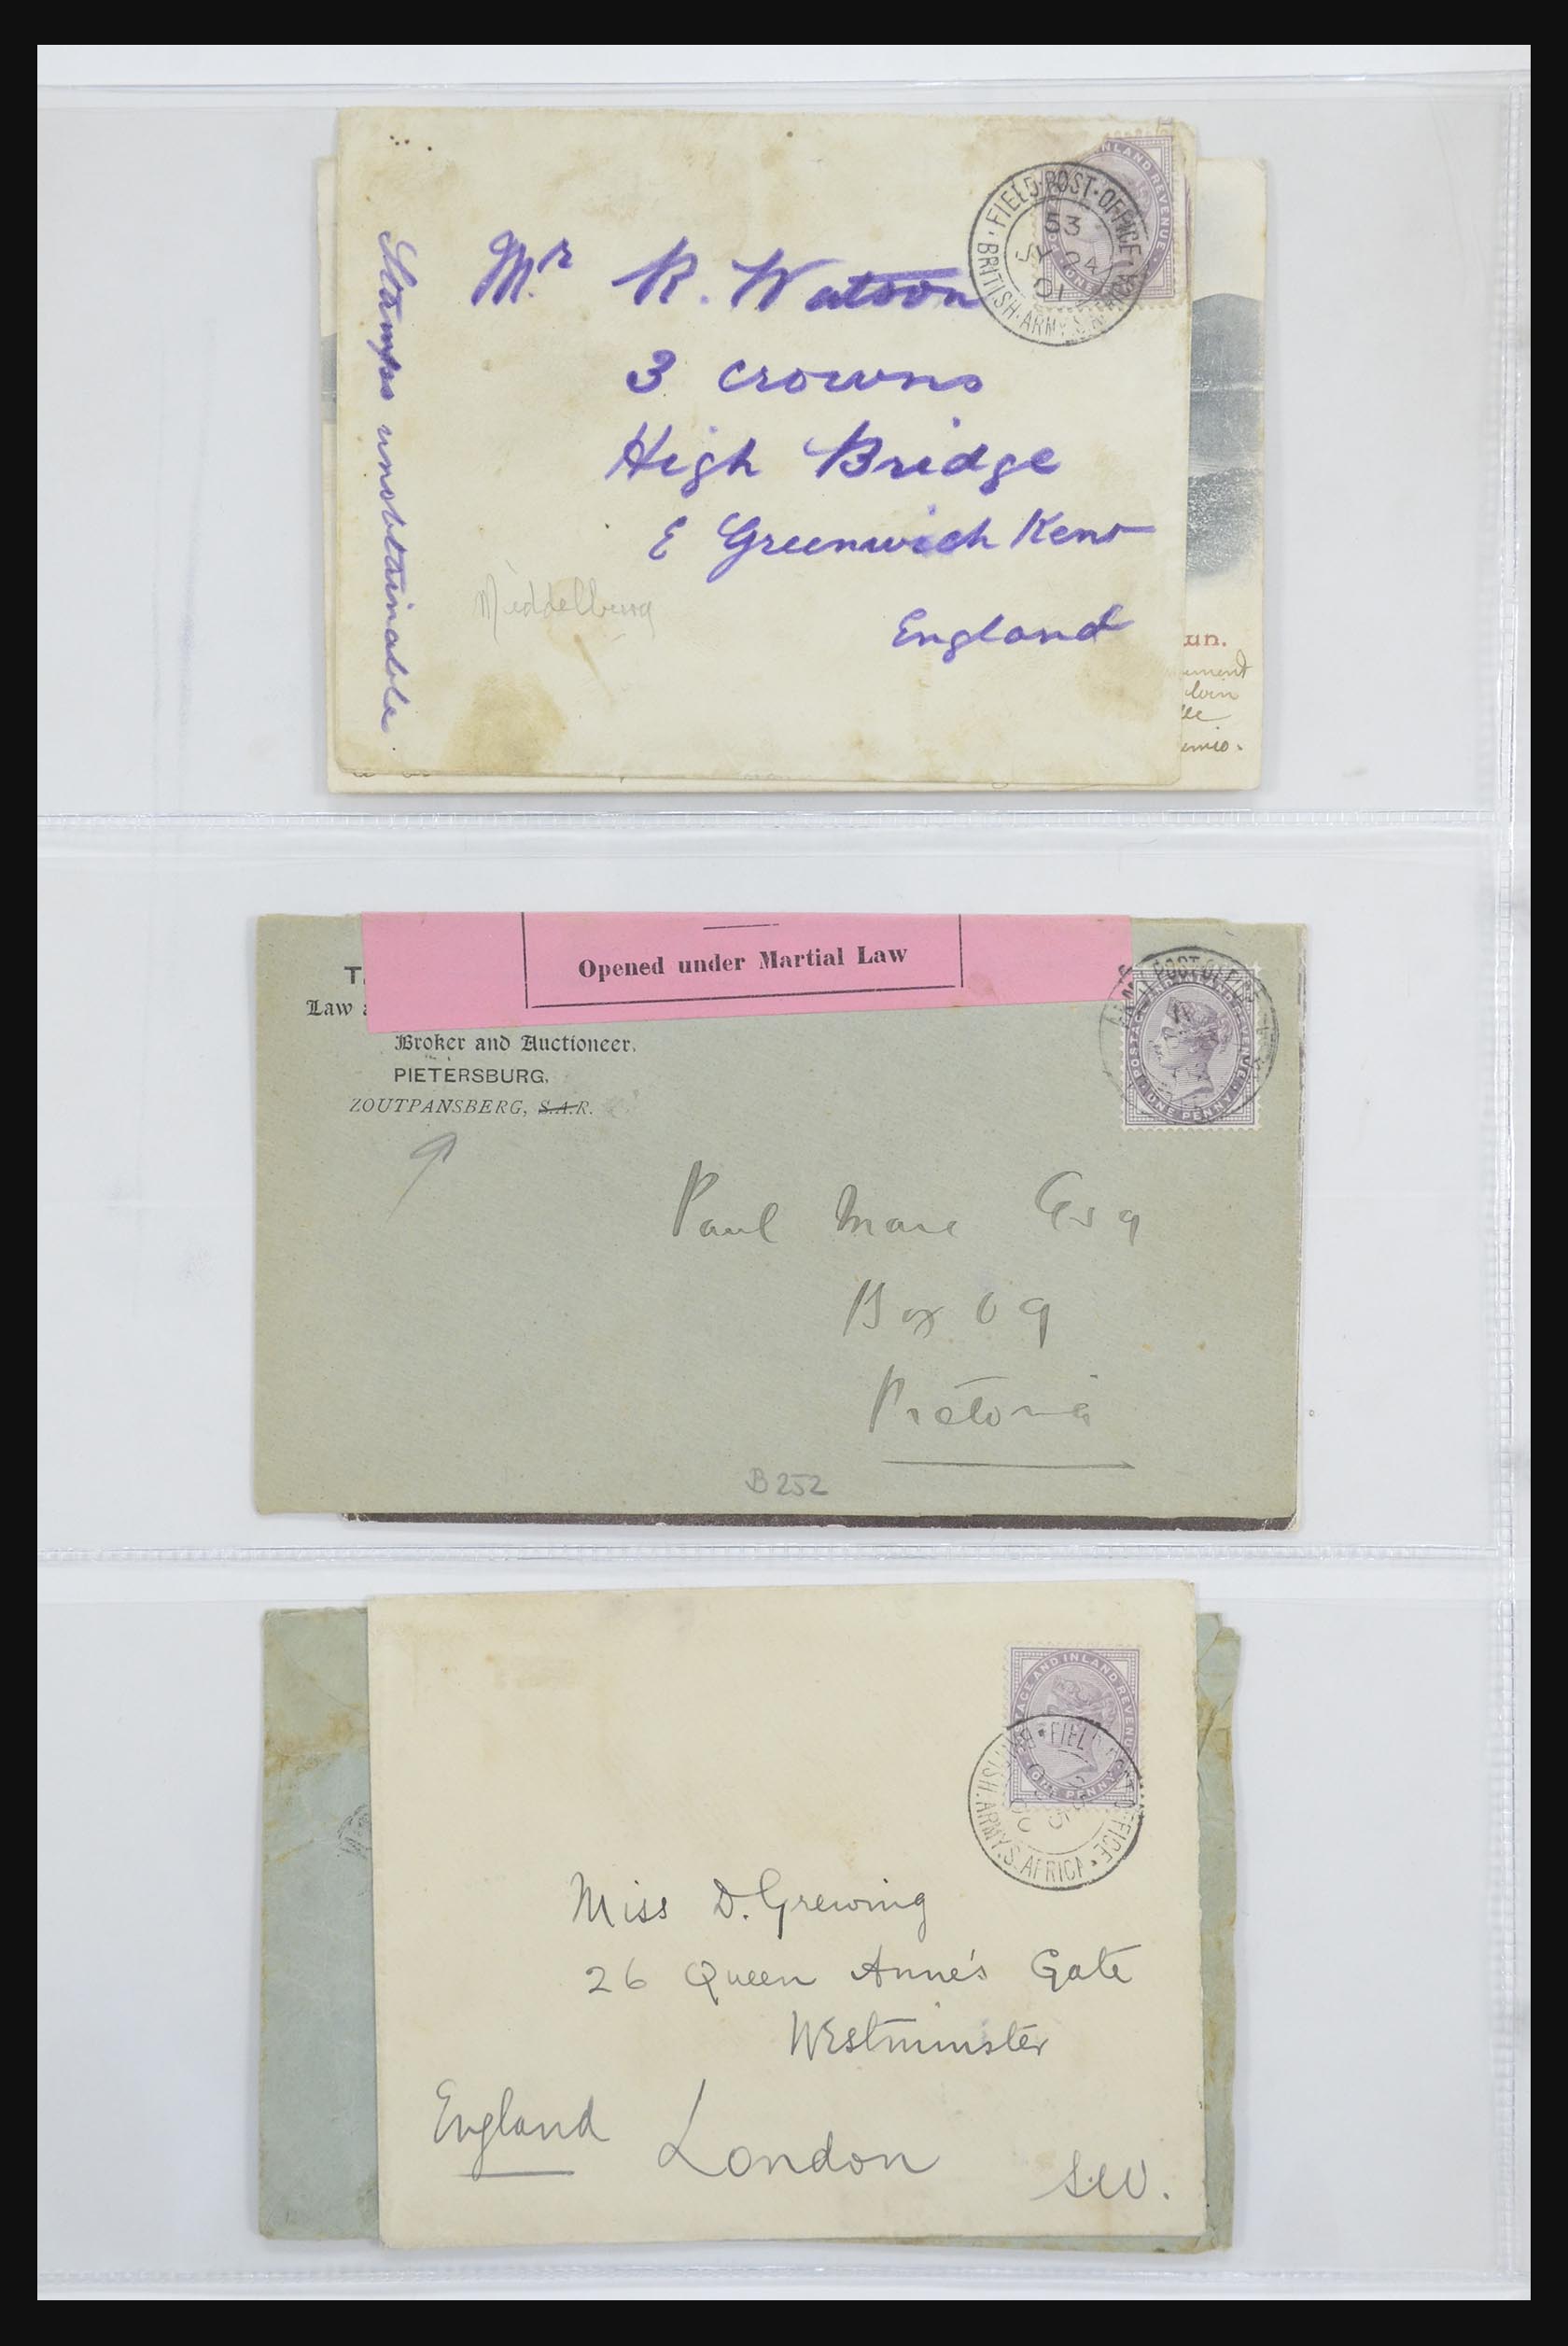 Stamps unobtainable.
FIELD·POST·OFFICE
53
JY 24
01
BRITISH·ARMY.S.AFRICA
INLAND REVENUE
Mr R. Watson
3 crowns
High Bridge
E Greenwich Kent
England
Middelburg
un.
Opened under Martial Law
T
Law
Broker and Auctioneer.
PIETERSBURG,
ZOUTPANSBERG, S.A.R.
ARMY POST OFFICE
POSTAGE AND INLAND REVENUE
ONE PENNY
Paul Mare Esq
Box 69
Pretoria
B252
POSTAGE AND INLAND REVENUE
ONE PENNY
FIELD POST OFFICE
BRITISH.ARMY.S.AFRICA
Miss D. Grewing
26 Queen Anne's Gate
Westminster
England London S.W.